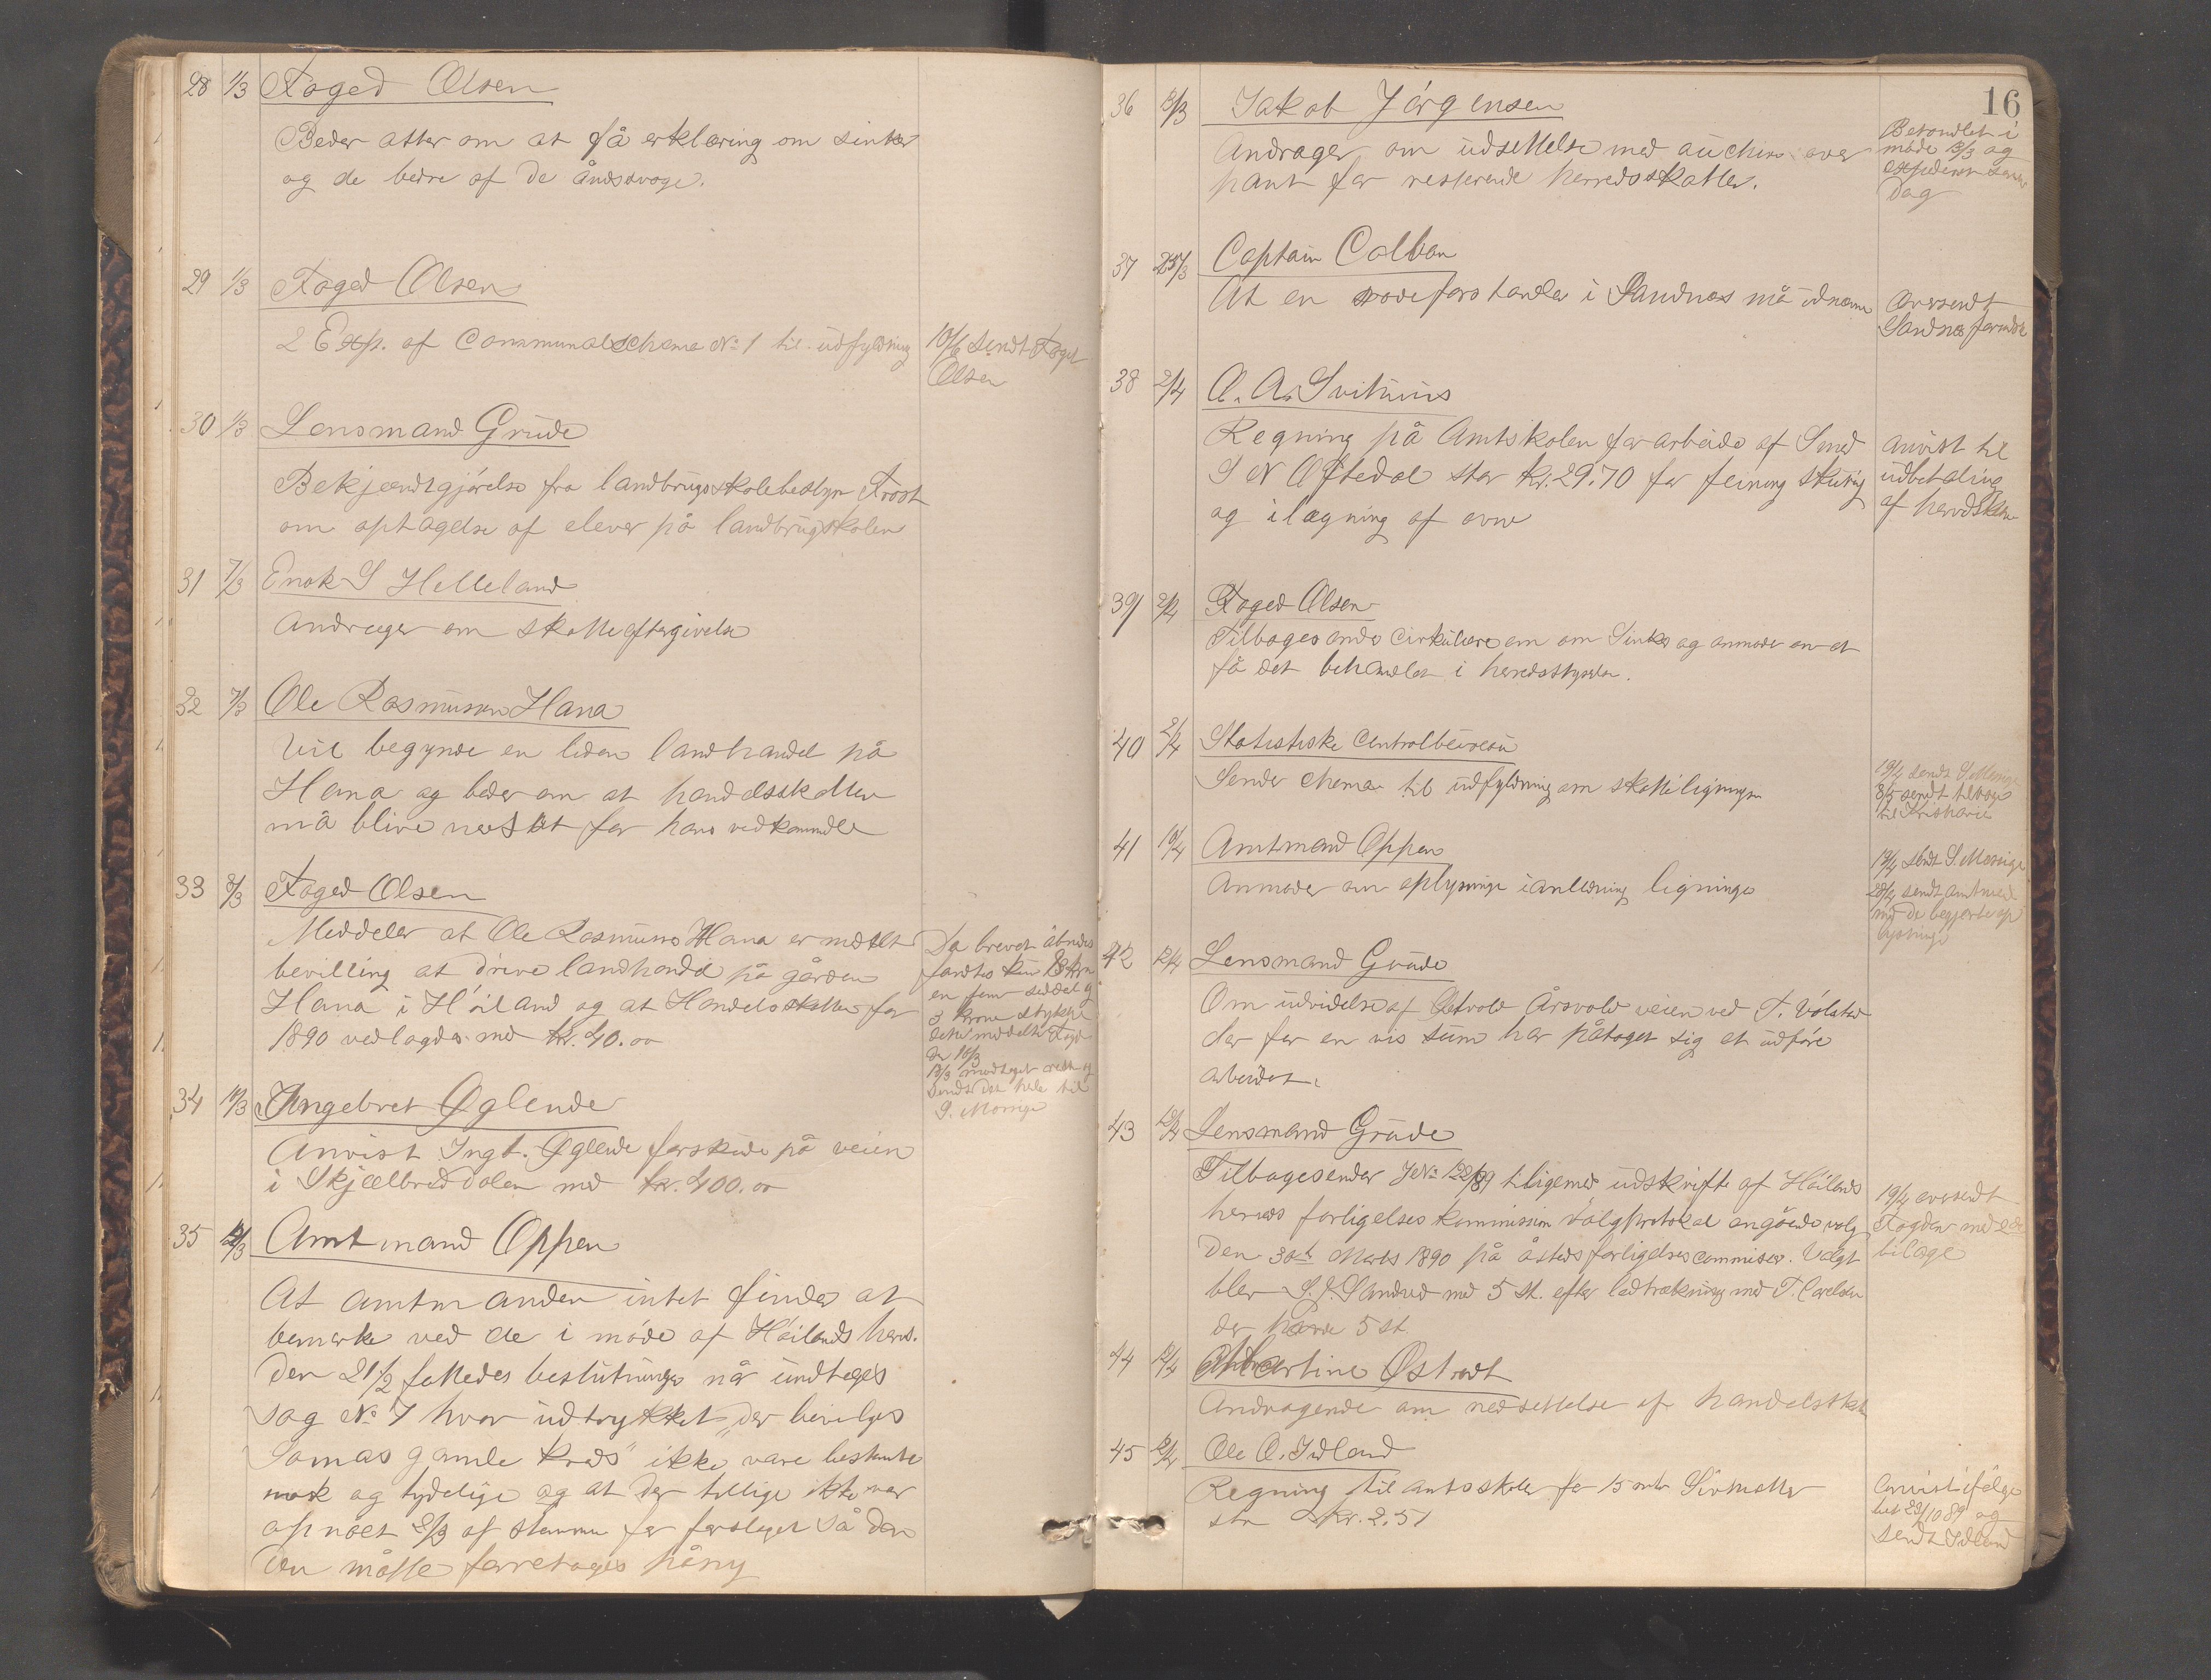 28 1/3 Foged Olsen
Beder atter om at få erklæring om sinker
og de bedre af de åndssvage.
29 1/3 Foged Olsen
2 Exp. af Communalschema No 1 til udfyldning
10/6 sendt Foged
Olsen
30 1/3 Lensmand Grude
Bekjendtgjørelse fra landbrugsskolebestyr Frost
om optagelse af elever på landbrugsskolen
31 7/3 Enok S Helleland
Andrager om skatteeftergivelse
32 7/3 Ole Rasmussen Hana
Vil begynde en liden landhandel på
Hana og beder om at handelsskatten
må blive nedsat for hans vedkommende
33 8/3 Foged Olsen
Meddeler at Ole Rasmuss Hana er meddelt
bevilling at drive landhandel på gården
Hana i Høiland og at Handelsskatten for
1890 vedlagdes med kr. 40.00
Da brevet åbnedes
fandtes kun 8 kr
en fem seddel og
3 krone stykker
dette meddeltes Foged
den 10/3
13/3 modtaget rette og
sendt det hele til
S. Mossige
34 10/3 Ingebret Øglende
Anvist Ingb. Øglende forskud på veien
i Skjælbreiddalen med kr. 400.00
35 12/3 Amtmand Oppen
At amtmanden intet finder at
bemerke ved de i møde af Høilands herred.
den 21/2 fattedes beslutninger når undtages
sag No 7 hvor udtrykket "der bevilges
Somas gamle kreds" ikke vare bestemte
nok og tydelige og at der tillige ikke var
opnået 2/3 af stemmer for forslaget så den
den måtte foretages påny
16
36 13/3 Jakob Jørgensen
Andrager om udsettelse med auction over
pant for resterende herredsskatter.
Behandlet i
møde 13/3 og
expederet samme
Dag
37 25/3 Captain Colban
At en rodeforstander i Sandnes må udnævne
oversendt
Sandnes formdsk
38 2/4 O. A. Svithuns
Regning på Amtskolen for arbeide af Smed
S N Oftedal stor kr. 29.70 for feining skuring
og ilægning af ovne
anvist til
udbetaling
af herredskas
39 2/4 Foged Olsen
Tilbagesende cirkulære om om Sinker og anmoder om at
få det behandlet i herredsstyrelse.
40 2/4 Statistiske Centralbureau
Sender Schema til udfyldning om skatteligningen
19/4 sendt S. Mossige
8/5 sendt tilbage
til Kristiania
41 10/4 Amtmand Oppen
Anmoder om oplysninge i anledning ligninge
19/4 sendt S. Mossige
28/4 sendt amtmand
med de begjærte op
lysninge
42 12/4 Lensmand Grude
Om udvidelse af Årsvold veien ved T. Vølstad
der for en vis sum har påtaget sig at udføre
arbeidet.
43 12/4 Lensmand Grude
Tilbagesender J No 122/89 tilligemed udskrifte af Høilands
herreds forligelseskommission valgprotokol angående valg
den 30te Marts 1890 på åsteds forligelsescommisær. Valgt
blev S. J. Sandved med 5 st. efter lodtrækning med T. Carelsen
der havde 5 st
19/4 oversendt
Fogden med
bilage
44 12/4 Østraat
Andragende om nedsettelse af handelsskat
45 12/4 Ole O. Idland
Regning til amtsskolen for 15 mtr Sivmatter
stor kr. 2.51
Anvist ifølge
bes 29/10 89 og
sendt Idland